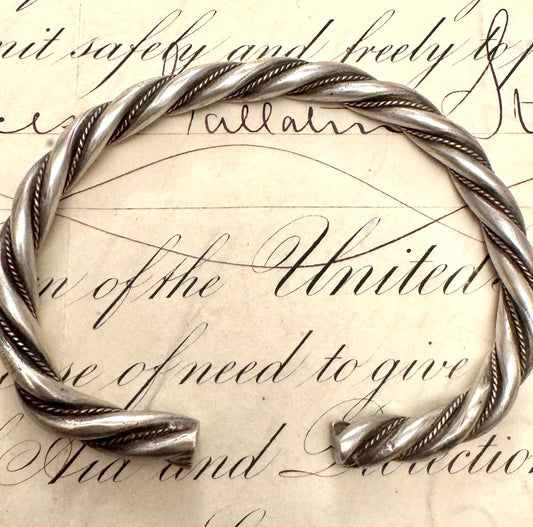 mit safely and freely to p
Tallahm
n of the United
se of need to give
l Aid and Protection